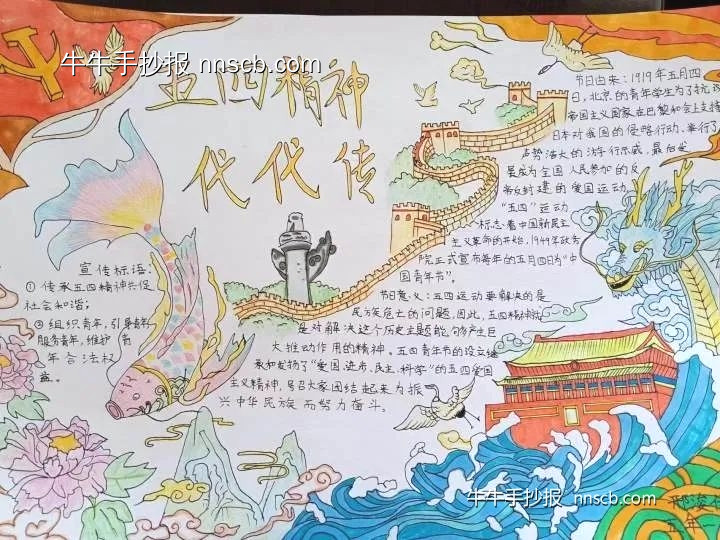 牛牛手抄报 nnscb.com
五四精神
代代传
节日由来：1919年五月四
日，北京的青年学生为了抗议
帝国主义国家在巴黎和会上支持
日本对我国的侵略行动，举行了
声势浩大的游行示威，最后发
展成为全国人民参加的反
帝反封建的爱国运动。
“五四”运动
标志着中国新民主
主义革命的开始，1949年政务
院正式宣布每年的五月四日为“中
国青年节”。
宣传标语：
①传承五四精神共促
社会和谐；
②组织青年，引导青年
服务青年，维护青
年合法权
益。
节日意义：五四运动要解决的是
民族危亡的问题，因此，五四精神
是对解决这个历史主题能够产生巨
大推动作用的精神。五四青年节的设立继
承和
了“爱国、进步、民主、科学”的五四爱国
主义精神，号召大家团结起来为振
兴中华民族而努力奋斗。
牛牛手抄报 nnscb.com
五年一